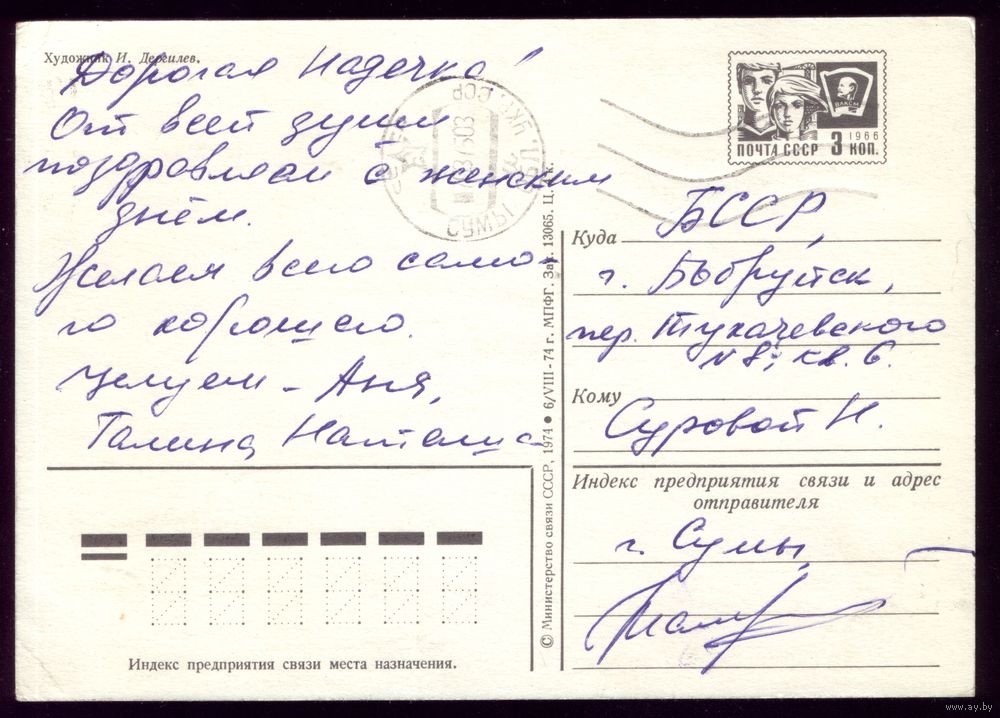 Художник И. Дергилев.
Дорогая Надечка!
От всей души
поздравляем с женским
днём.
Желаем всего само-
го хорошего.
Целуем - Аня,
Галина Наташа
ПОЧТА СССР 3 КОП.
1966
ВЛКСМ
СУМЫ
Куда БССР,
г. Бобруйск,
пер. Тухачевского
N 8; кв. 6.
Кому
Суровой Н.
Индекс предприятия связи и адрес
отправителя
г. Сумы,
Индекс предприятия связи места назначения.
© Министерство связи СССР, 1974 ● 6/VIII - 74 г. МПФГ. Зак. 13065. Ц.
www.ay.by